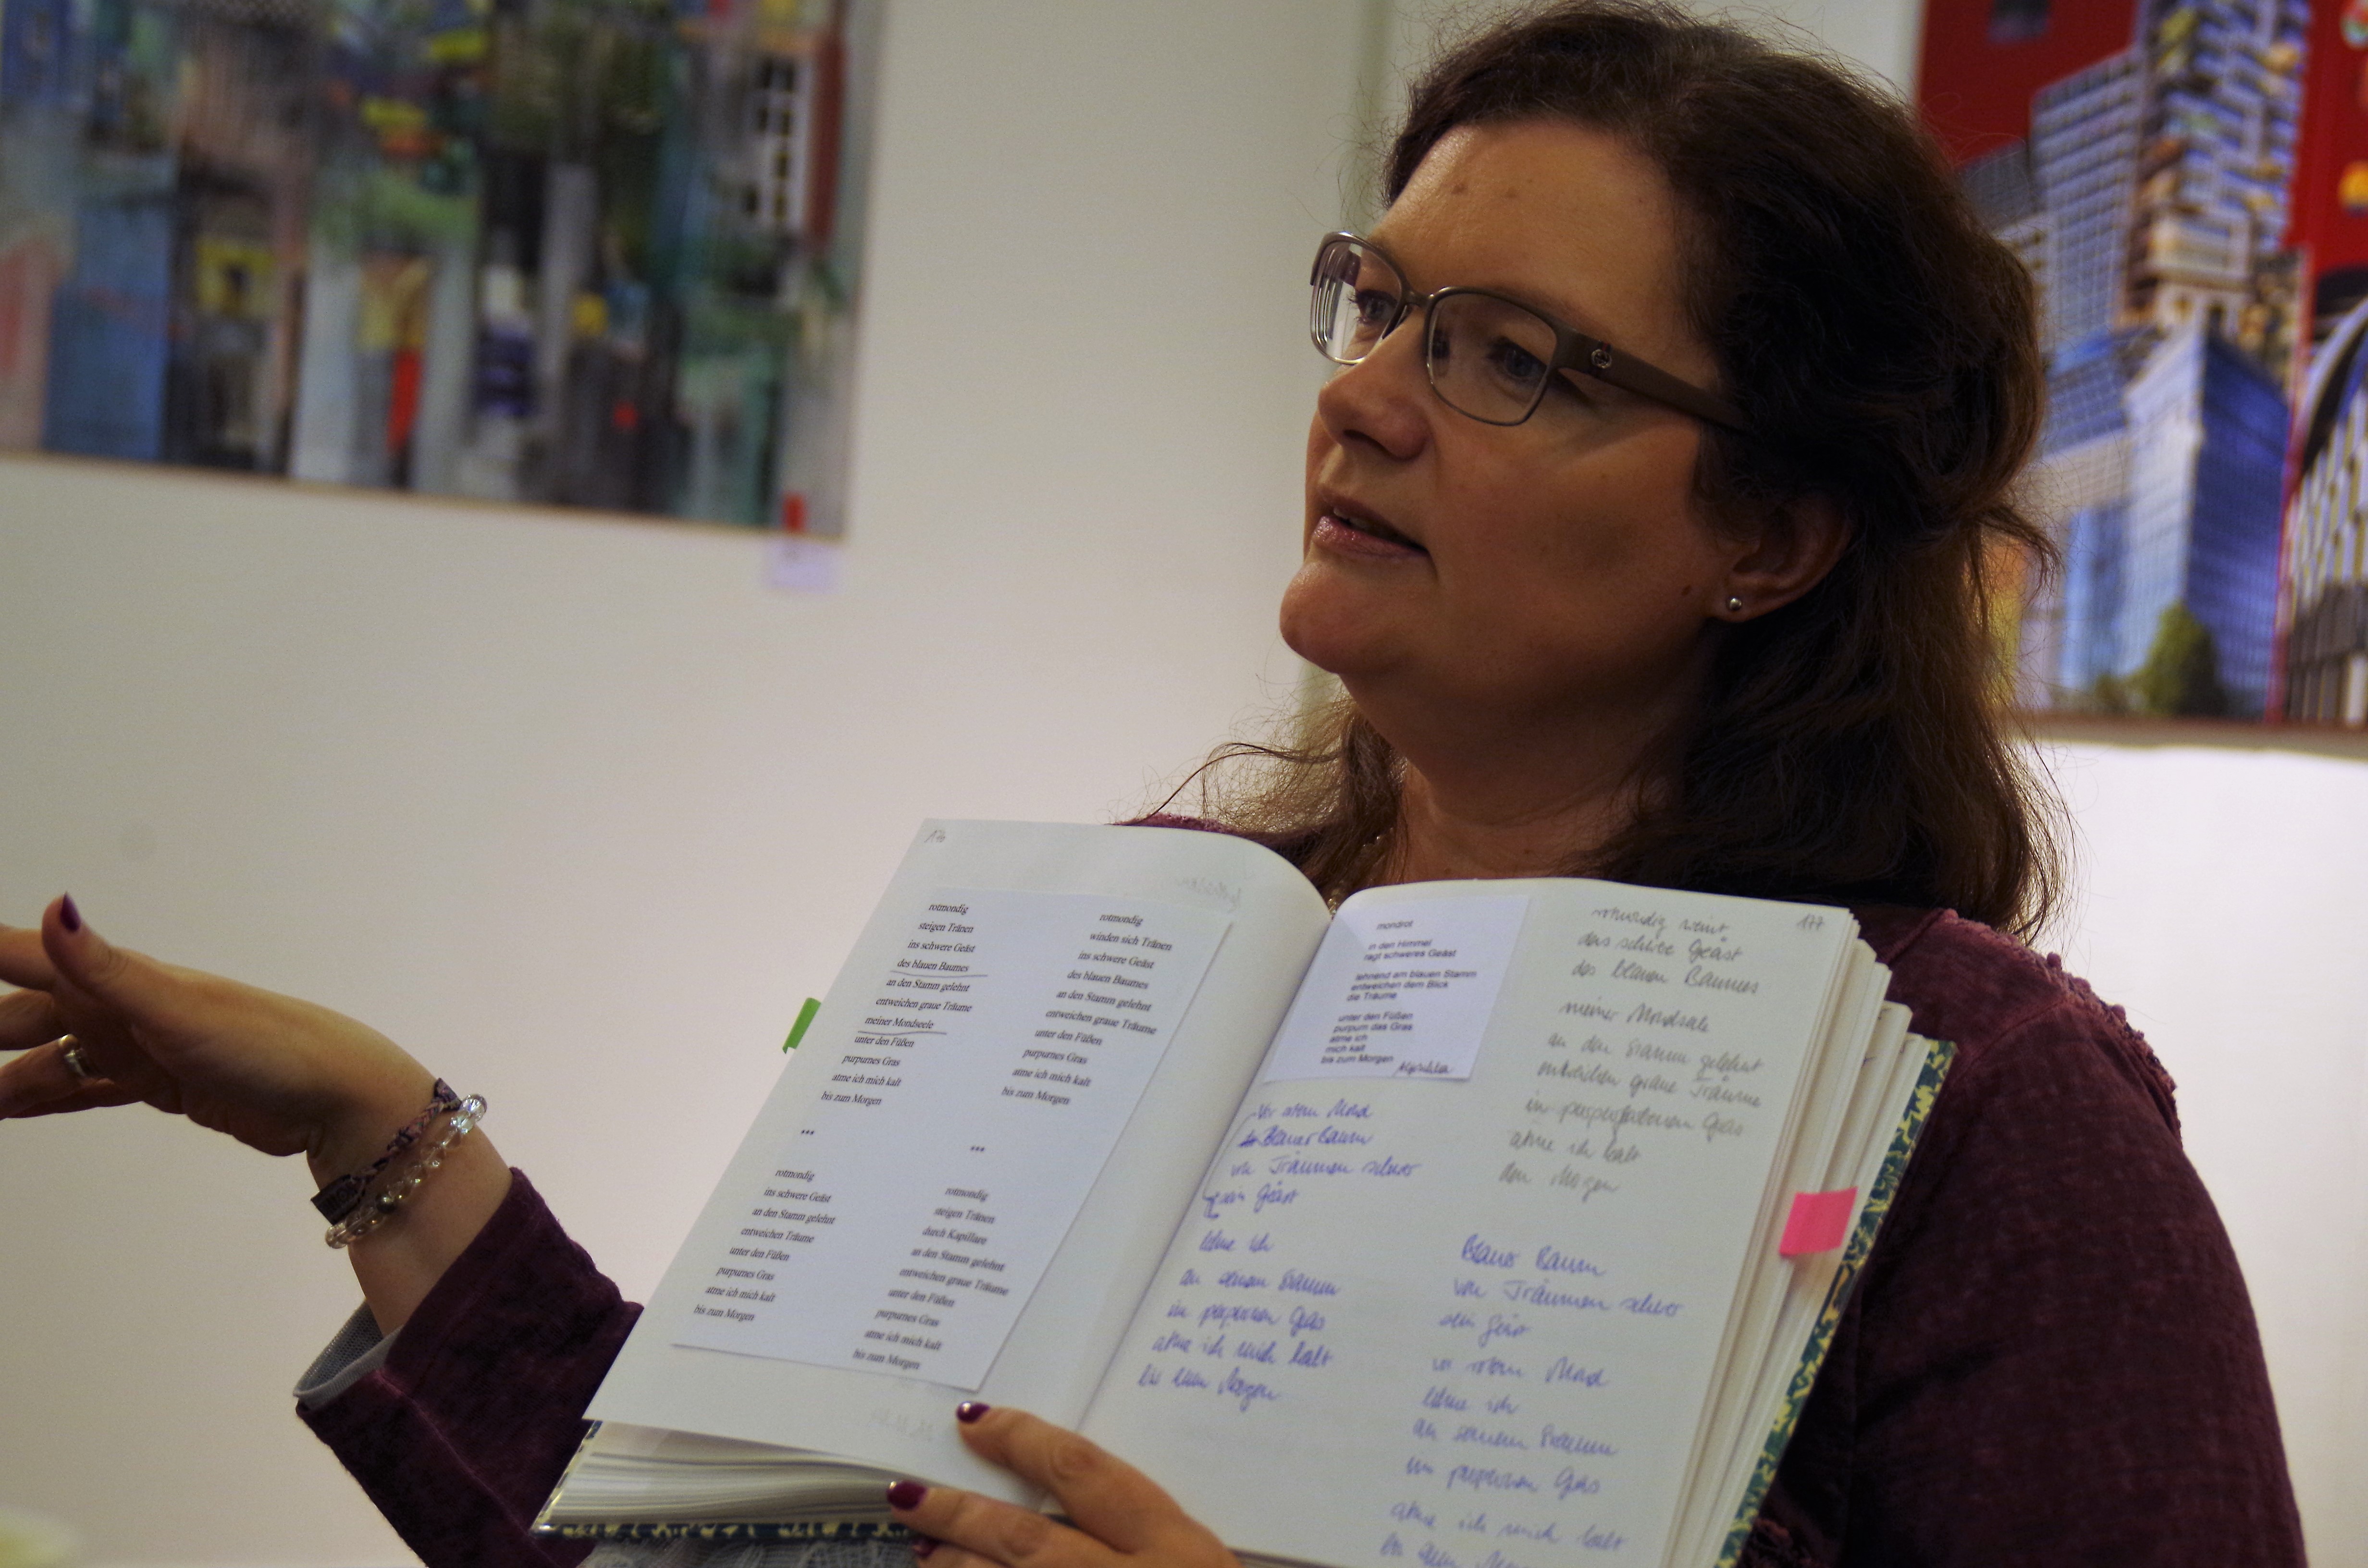 176
rotmondig
steigen Tränen
ins schwere Geäst
des blauen Baumes
an den Stamm gelehnt
entweichen graue Träume
meiner Mondseele
unter den Füßen
purpurnes Gras
atme ich mich kalt
bis zum Morgen
***
rotmondig
ins schwere Geäst
an den Stamm gelehnt
entweichen Träume
unter den Füßen
purpurnes Gras
atme ich mich kalt
bis zum Morgen
rotmondig
winden sich Tränen
ins schwere Geäst
des blauen Baumes
an den Stamm gelehnt
entweichen graue Träume
unter den Füßen
purpurnes Gras
atme ich mich kalt
bis zum Morgen
***
rotmondig
steigen Tränen
durch Kapillare
an den Stamm gelehnt
entweichen graue Träume
unter den Füßen
purpurnes Gras
atme ich mich kalt
bis zum Morgen
mondrot
in den Himmel
ragt schweres Geäst
lehnend am blauen Stamm
entweichen dem Blick
die Träume
unter den Füßen
purpurn das Gras
atme ich
mich kalt
bis zum Morgen
Vor rotem Mond
Blauer Baum
von Träumen schwer
dein Geäst
lehne ich
an deinem Stamm
im purpurnen Gras
atme ich mich kalt
bis zum Morgen
177
rotmondig weint
das schwere Geäst
des blauen Baumes
meiner Mondseele
an den Stamm gelehnt
entweichen graue Träume
im Gras
atme ich kalt
den Morgen
Blauer Baum
von Träumen schwer
dein Geäst
vor rotem Mond
lehne ich
an deinem Stamm
im purpurnen Gras
atme ich mich kalt
bis zum Morgen